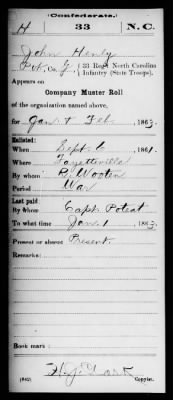 (Confederate.)
H 33 N.C.
John Henly
Pvt, Co. , 33 Reg't North Carolina
Infantry (State Troops).
Appears on
Company Muster Roll
of the organization named above,
for Jan & Feb, 1863.
Enlisted:
When Sept 6, 1861.
Where Fayetteville
By whom Wooten
Period War
Last paid:
By whom Capt. Poteat
To what time Jan 1, 1863.
Present or absent Present.
Remarks:
Book mark:
(642) Copyist.